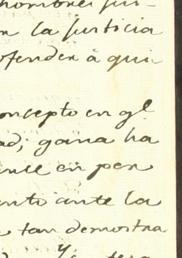 hombres jus-
n la justicia
ofender á qui
oncepto en gl
ad; gana ha
ente en per
nto ante la
tan demostra
y